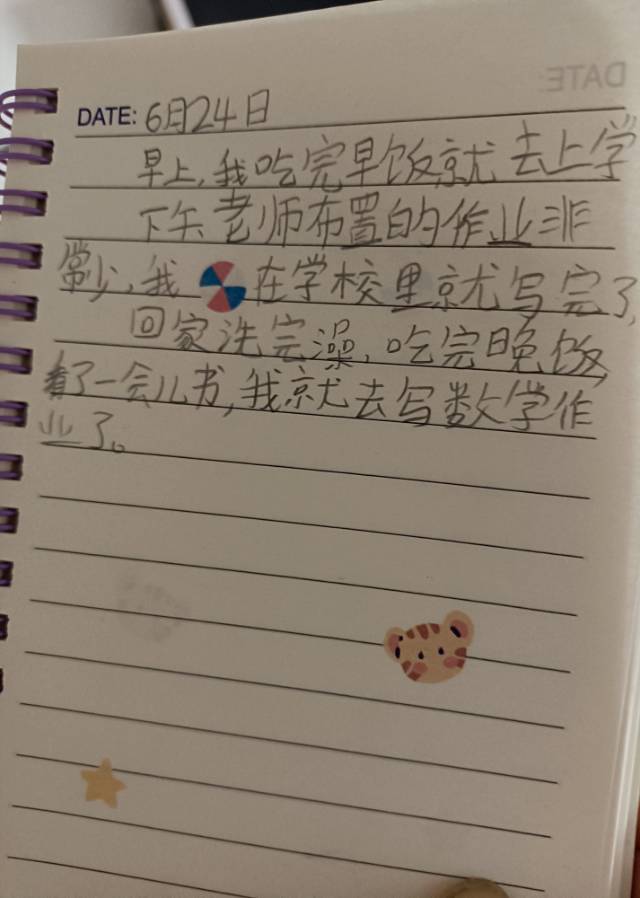 DATE:
DATE: 6月24日
早上,我吃完早饭,就去上学
下午老师布置的作业非
常少,我在学校里就写完了,
回家洗完澡,吃完晚饭,
看了一会儿书,我就去写数学作
业了。